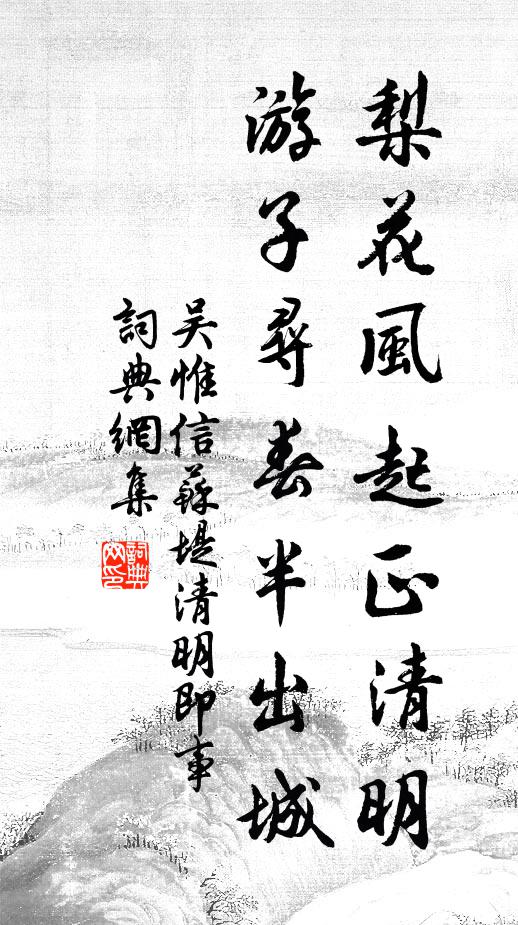 梨花風起正清明
游子尋春半出城
吴惟信蘇堤清明即事
詞典網集
詞典
网印